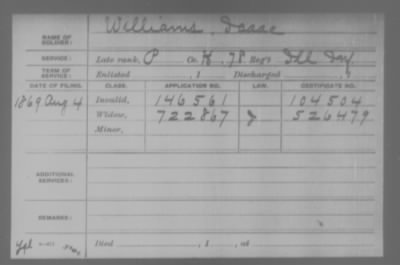 NAME OF SOLDIER: Williams, Isaac
SERVICE: Late rank, P Co. K, 78 Reg't Ill Inf.
TERM OF SERVICE: Enlisted , 1 Discharged , 1
DATE OF FILING. CLASS. APPLICATION NO. LAW. CERTIFICATE NO.
1869 Aug 4 Invalid, 146561 104504
Widow, 722867 526479
Minor,
ADDITIONAL SERVICES:
REMARKS:
Died , 1 , at